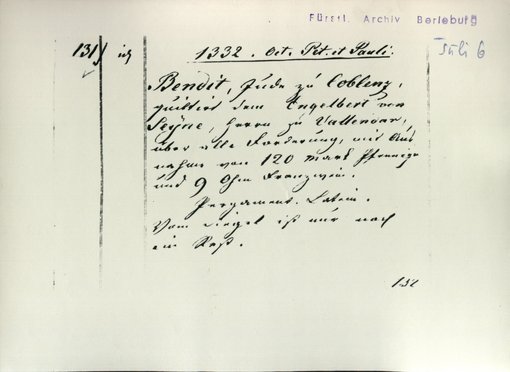 Fürstl. Archiv Berleburg
Juli 6
131)
1332. Oct. Pet. et Pauli.
Bendit, Jude zu Coblenz,
quittirt dem Engelbert von
Seyne, Herrn zu Vallendar,
über alle Forderung, mit Aus
nahme von 120 Mark Pfennige
und 9 Ohm Franzwein.
Pergament. Latein.
Vom Siegel ist nur noch
ein Rest.
132